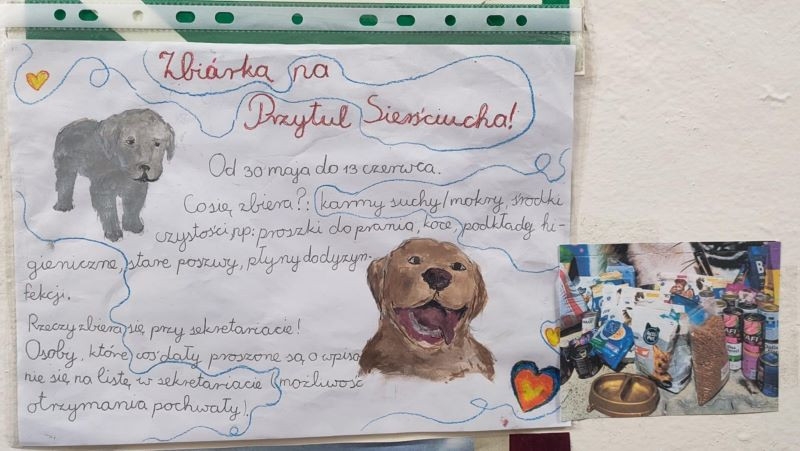 Zbiórka na
Przytul Sierściucha!
Od 30 maja do 13 czerwca.
Co się zbiera?: karmy suchy/mokry, środki
czystości, np: proszki do prania, koce, podkłady hi-
gieniczne, stare poszwy, płyny do dyzyn-
fekcji.
Rzeczy zbiera się przy sekretariacie!
Osoby, które coś dały proszone są o wpisa
nie się na listę w sekretariacie (możliwość
otrzymania pochwały).